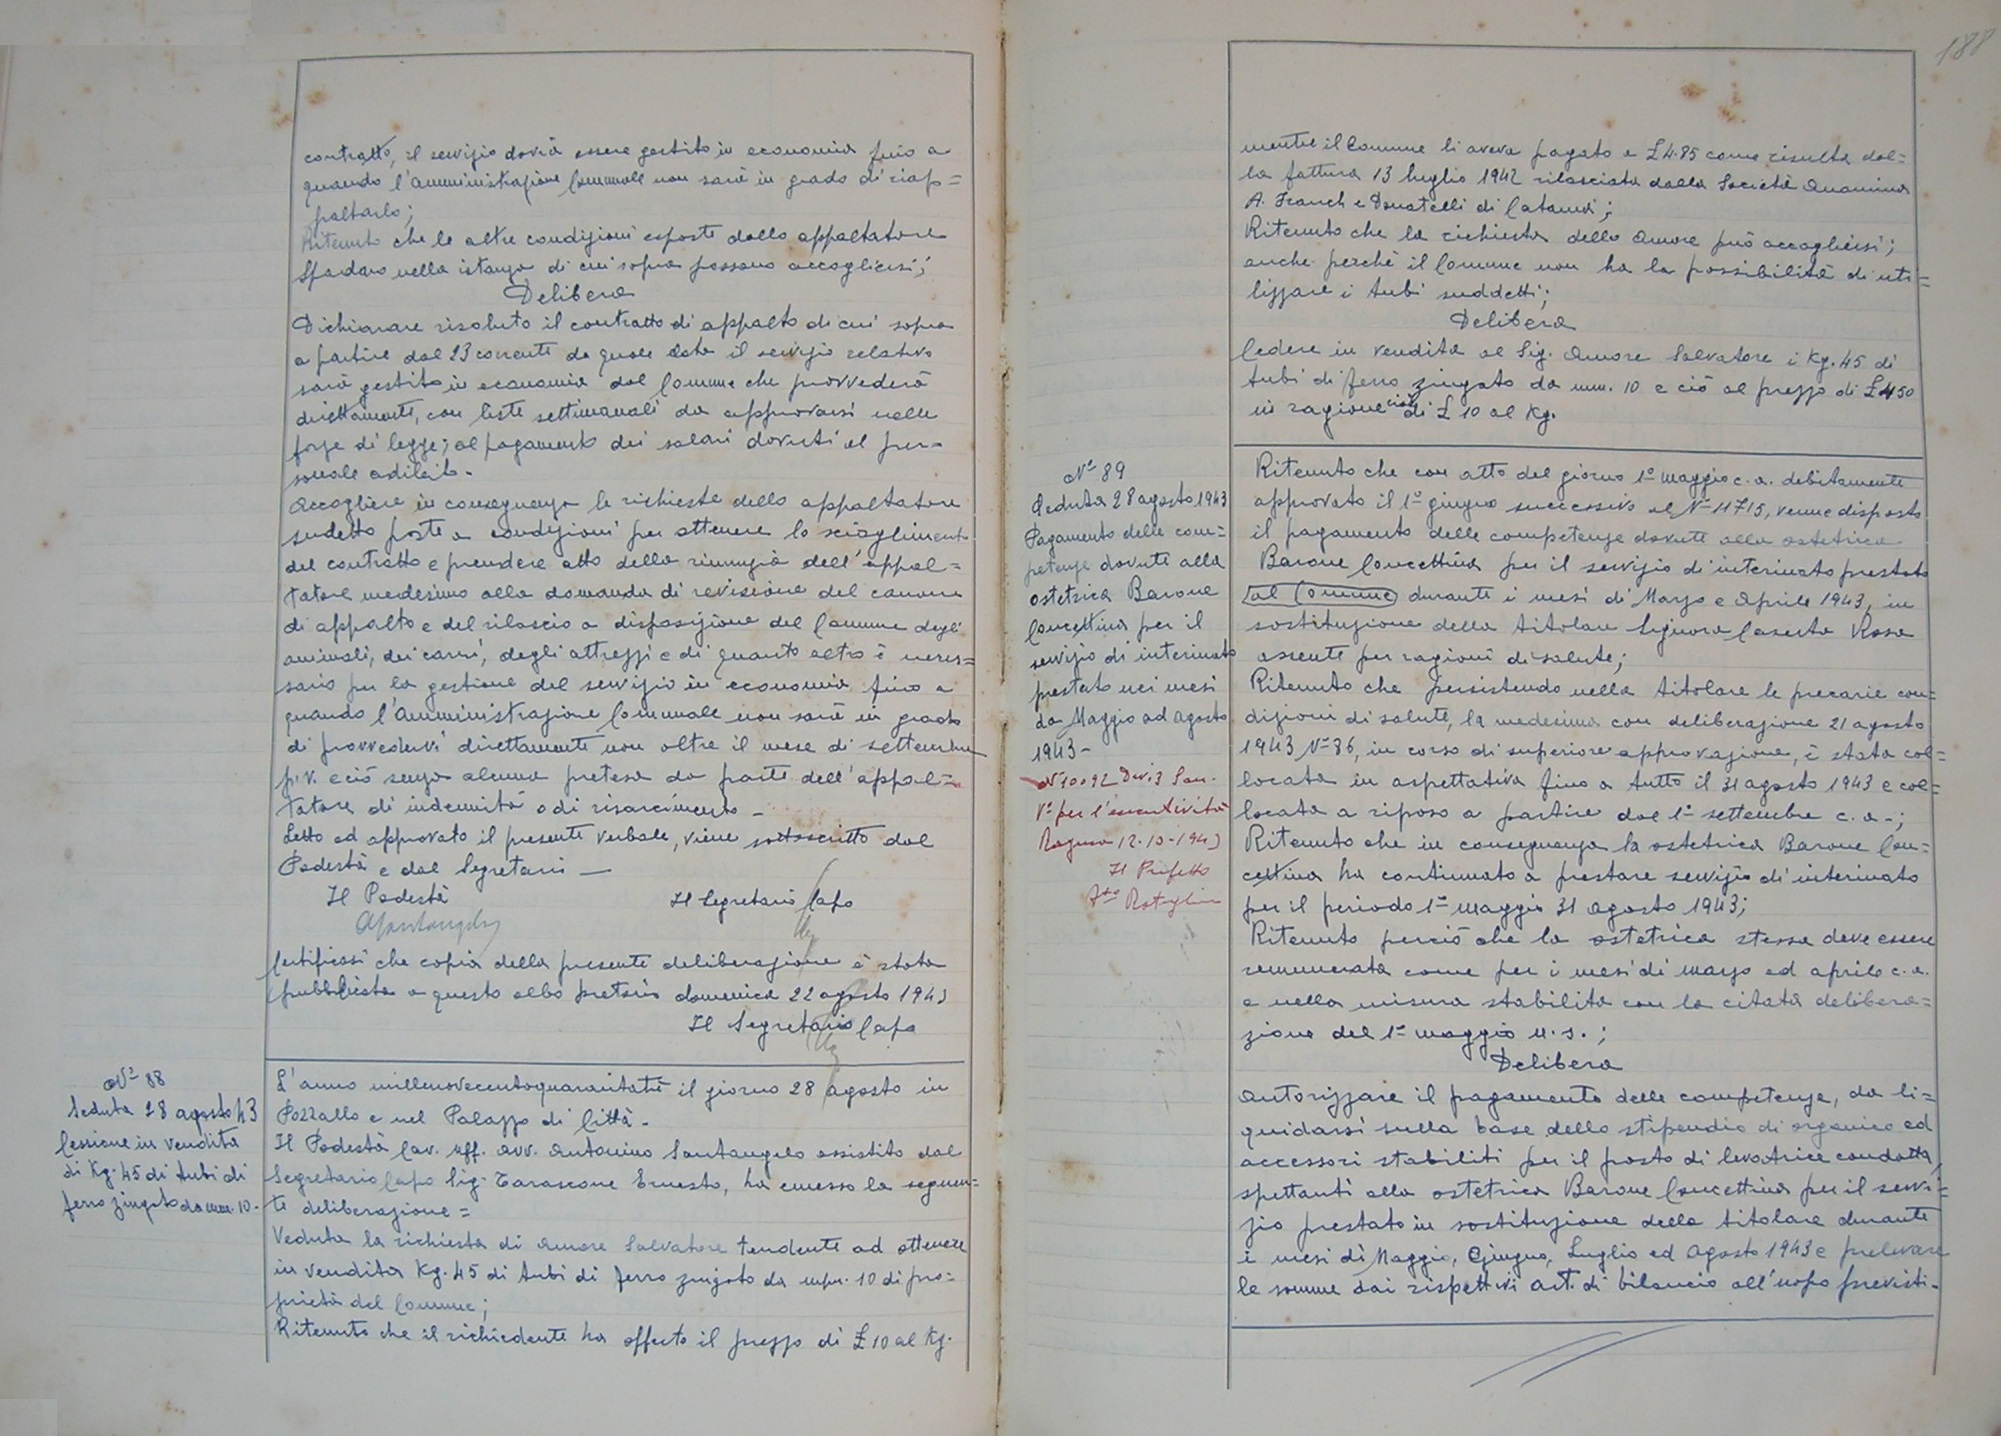 contratto, il servizio dovrà essere gestito in economia fino a
quando l'Amministrazione Comunale non sarà in grado di riap=
paltarlo;
Ritenuto che le altre condizioni esposte dallo appaltatore
Spadaro nella istanza di cui sopra possono accogliersi;
Delibera
Dichiarare risoluto il contratto di appalto di cui sopra
a partire dal 23 corrente da quale data il servizio relativo
sarà gestito in economia dal Comune che provvederà
direttamente, con liste settimanali da approvarsi nelle
forze di legge; al pagamento dei salari dovuti al per-
sonale adibito.
Accogliere in conseguenza le richieste dello appaltatore
sudetto poste a condizioni per ottenere lo scioglimento
del contratto e prendere atto della rinunzia dell'appal=
tatore medesimo alla domanda di revisione del canone
di appalto e del rilascio a disposizione del Comune degli
animali, dei carri, degli attrezzi e di quanto altro è neces=
sario per la gestione del servizio in economia fino a
quando l'Amministrazione Comunale non sarà in grado
di provvedervi direttamente non oltre il mese di settembre
p.v. e ciò senza alcuna pretesa da parte dell'appal=
tatore di indennità o di risarcimento -
Letto ed approvato il presente verbale, viene sottoscritto dal
Podestà e dal Segretario -
Il Podestà Il Segretario Capo
ASantangelo
Certificasi che copia della presente deliberazione è stata
pubblicata a questo albo pretorio domenica 22 agosto 1943
Il Segretario Capo
N° 88
Seduta 28 agosto 43
Cessione in vendita
di Kg. 45 di tubi di
ferro zingato da mm. 10-
L'anno millenovecentoquarantatrè il giorno 28 agosto in
Pozzallo e nel Palazzo di Città-
Il Podestà Cav. Uff. Avv. Antonino Santangelo assistito dal
Segretario Capo Sig. Tarascone Ernesto, ha emesso la seguen=
te deliberazione=
Veduta la richiesta di Amore Salvatore tendente ad ottenere
in vendita Kg. 45 di tubi di ferro zingato da mm. 10 di pro=
prietà del Comune;
Ritenuto che il richiedente ha offerto il prezzo di £ 10 al Kg.
188
mentre il Comune li aveva pagato a £ 4.85 come risulta dal=
la fattura 13 luglio 1942 rilasciata dalla Società Anonima
A. Franch e Donatelli di Catania;
Ritenuto che la richiesta dello Amore può accogliersi;
anche perchè il Comune non ha la possibilità di uti=
lizzare i tubi suddetti;
Delibera
Cedere in vendita al Sig. Amore Salvatore i Kg. 45 di
tubi di ferro zingato da mm. 10 e ciò al prezzo di £ 450
in ragione cioè di £ 10 al Kg.
N° 89
Seduta 28 agosto 1943
Pagamento delle com=
petenze dovute alla
ostetrica Barone
Concettina per il
servizio di interinato
prestato nei mesi
da Maggio ad Agosto
1943-
N° 10092 Div. 3 San.
V° per l'esecutività
Ragusa 12-10-1943
Il Prefetto
Ritenuto che con atto del giorno 1° maggio c.a. debitamente
approvato il 1° giugno successivo al N° 11715, venne disposto
il pagamento delle competenze dovute alla ostetrica
Barone Concettina per il servizio di interinato prestato
al Comune durante i mesi di Marzo e Aprile 1943, in
sostituzione della titolare Signora Caserta Rosa
assente per ragioni di salute;
Ritenuto che persistendo nella titolare le precarie con=
dizioni di salute, la medesima con deliberazione 21 agosto
1943 N° 86, in corso di superiore approvazione, è stata col=
locata in aspettativa fino a tutto il 31 agosto 1943 e col=
locata a riposo a partire dal 1° settembre c.a.-;
Ritenuto che in conseguenza la ostetrica Barone Con=
cettina ha continuato a prestare servizio di interinato
per il periodo 1° maggio 31 Agosto 1943;
Ritenuto perciò che la ostetrica stessa deve essere
remunerata come per i mesi di marzo ed aprile c.a.
e nella misura stabilita con la citata delibera=
zione del 1° maggio u.s.;
Delibera
Autorizzare il pagamento delle competenze, da li=
quidarsi sulla base dello stipendio di organico ed
accessori stabiliti per il posto di levatrice condotta,
spettanti alla ostetrica Barone Concettina per il servi=
zio prestato in sostituzione della titolare durante
i mesi di Maggio, Giugno, Luglio ed Agosto 1943 e prelevare
le somme dai rispettivi art. di bilancio all'uopo previsti-